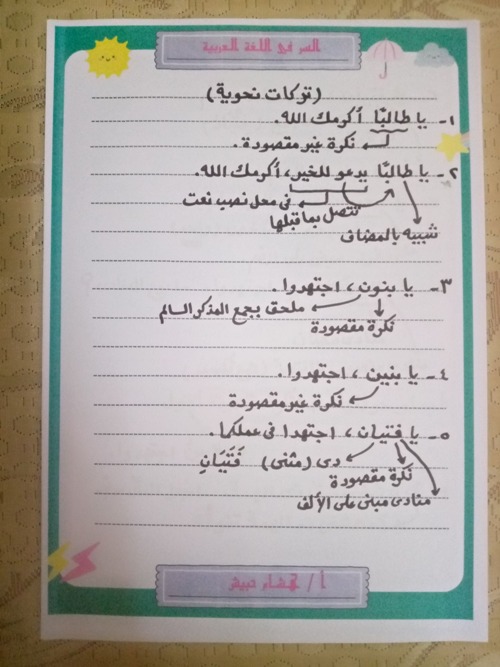 السر في اللغة العربية
(توكات نحوية)
١- يا طالبًا أكرمك الله.
نكرة غير مقصودة.
٢- يا طالبًا يدعو للخير، أكرمك الله.
في محل نصب نعت
تتصل بما قبلها
شبيه بالمضاف
٣- يا بنون، اجتهدوا.
ملحق بجمع المذكر السالم
نكرة مقصودة
٤- يا بنين، اجتهدوا.
نكرة غير مقصودة
٥- يا فتيان، اجتهدا في عملكما.
دى (مثنى) فَتَيَانِ
نكرة مقصودة
منادى مبنى على الألف
أ /